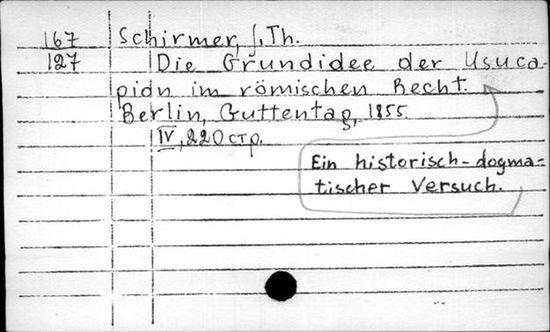 167 Schirmer, J. Th.
127 Die Grundidee der Usuca-
pion im römischen Recht.
Berlin, Guttentag, 1855.
IV, 220 стр.
Ein historisch-dogma-
tischer Versuch.